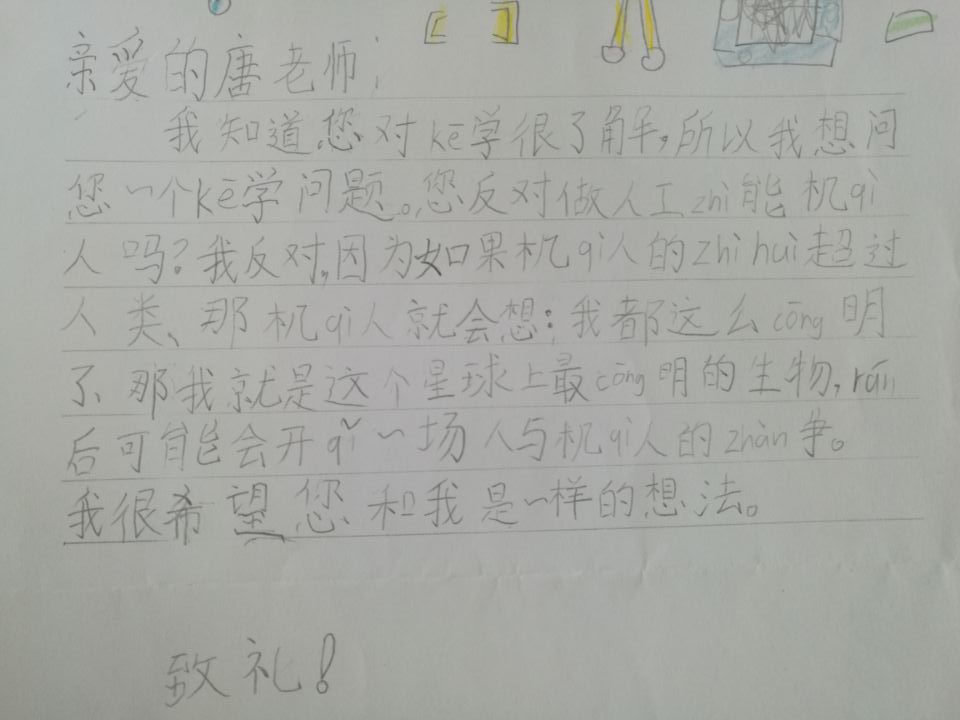 亲爱的唐老师：
我知道您对kē学很了解，所以我想问
您一个kē学问题。您反对做人工zhì能机qì
人吗？我反对，因为如果机qì人的zhì huì超过
人类、那机qì人就会想：我都这么cōng明
了、那我就是这个星球上最cōng明的生物，rán
后可能会开qǐ一场人与机qì人的zhàn争。
我很希望您和我是一样的想法。
致礼！